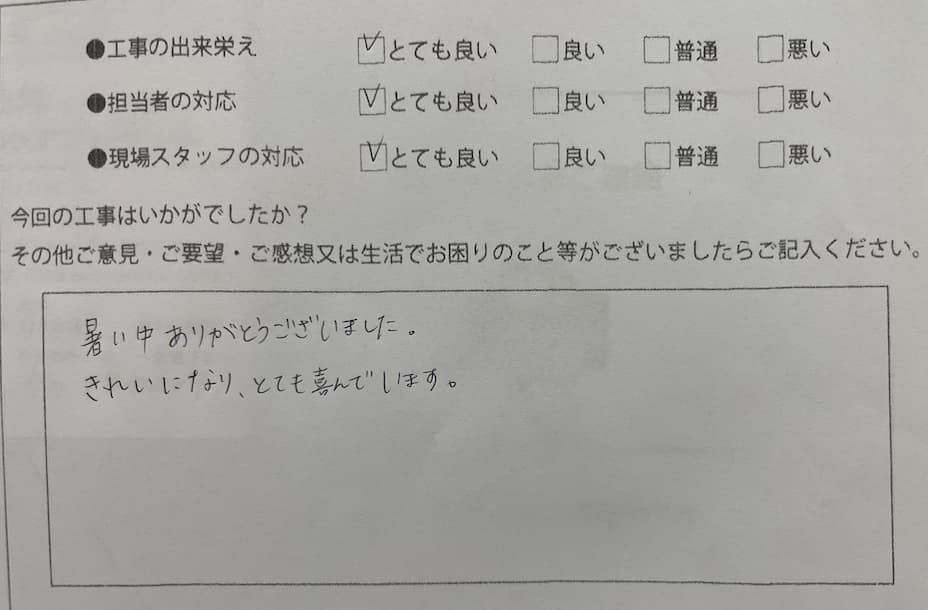 ●工事の出来栄え ☑とても良い □良い □普通 □悪い
●担当者の対応 ☑とても良い □良い □普通 □悪い
●現場スタッフの対応 ☑とても良い □良い □普通 □悪い
今回の工事はいかがでしたか？
その他ご意見・ご要望・ご感想又は生活でお困りのこと等がございましたらご記入ください。
暑い中ありがとうございました。
きれいになり、とても喜んでいます。